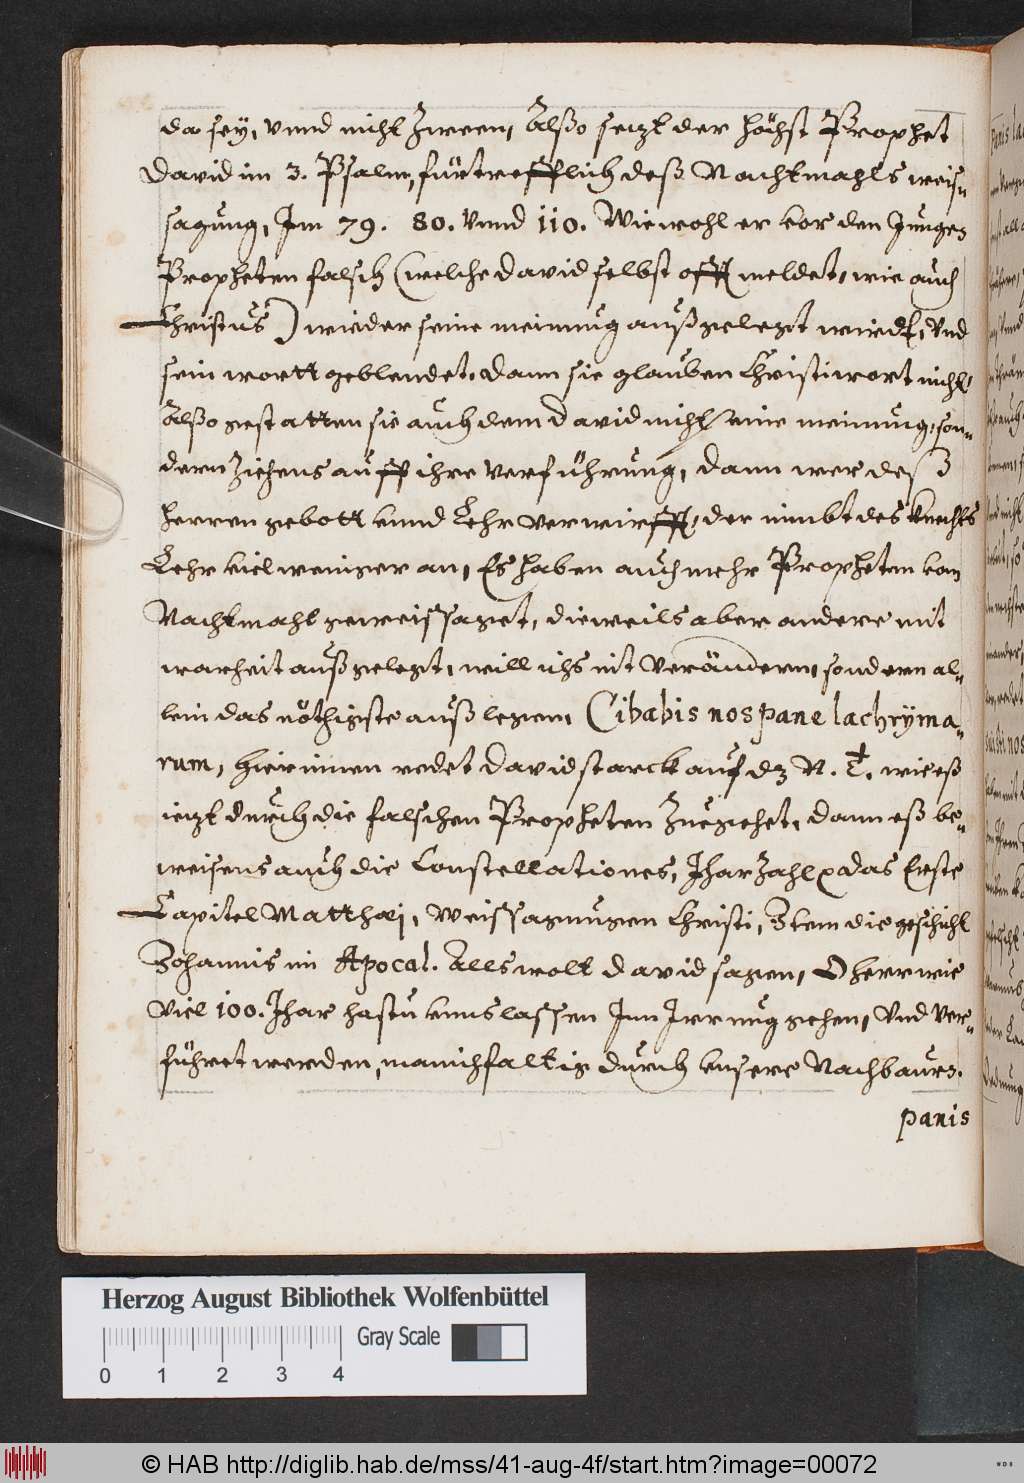 da sey, vnnd nicht Zween, Alßo sezt der höchst Prophet
David im 3. Psalm, fürtrefflich deß Nachtmahls weis-
sagung, Jm 79. 80. Vnnd 110. Wiewohl er vor den Jungen
Propheten falsch (welche David selbst offt meldet, wie auch
Christus) wieder seine meinung außgelegt wirdt, Vnd
sein wortt geblendet, dann sie glauben Christi wort nicht,
Alßo gestatten sie auch dem David nicht seine meinung, son-
dern Ziehens auff ihre Verführung, dann wer deß
Herren gebott vnnd Lehr verwirfft, der nimbt des Knechts
Lehr viel weniger an, Es haben auch mehr Propheten vom
Nachtmahl geweissaget, dieweils aber andere mit
warheit außgelegt, will ichs nit Verändern, sondern al-
lein das nöthigste außlegen, Cibabis nos pane lachryma-
rum, hierinnen redet David starck auf dz N. T. wie eß
iezt durch die falschen Propheten Zuegehet, dann eß be-
weisens auch die Constellationes, Jhar Zahl das Erste
Capitel Matthæj, Weissagungen Christi, Jtem die geschicht
Johannis im Apocal. Alls wolt David sagen, O herr wie
Viel 100. Jhar hastu vnns lassen Jnn Jrrung gehen, Vnd Ver-
führet werden, manichfaltig durch vnsere Nachbaurn.
panis
Herzog August Bibliothek Wolfenbüttel
Gray Scale
0 1 2 3 4
© HAB http://diglib.hab.de/mss/41-aug-4f/start.htm?image=00072